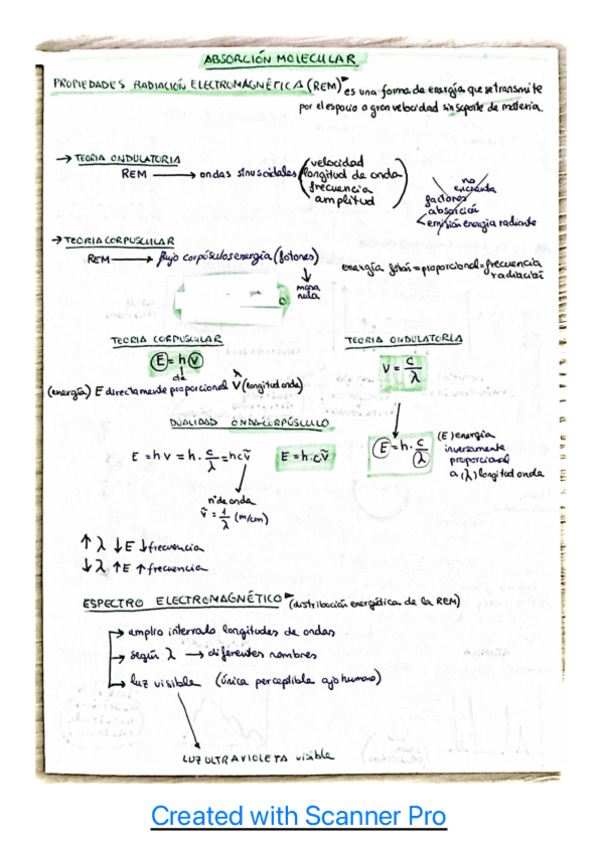 ABSORCIÓN MOLECULAR
PROPIEDADES RADIACIÓN ELECTROMAGNÉTICA (REM) es una forma de energía que se transmite
por el espacio a gran velocidad sin soporte de materia.
→ TEORIA ONDULATORIA
REM → ondas sinusoidales (velocidad
longitud de onda
frecuencia
amplitud)
no
encuenta
factores
absorción
emisión energía radiante
→ TEORIA CORPUSCULAR
REM → flujo corpúsculos energía (fotones)
↓
masa
nula
energía fotón = proporcional = frecuencia
radiación
TEORIA CORPUSCULAR
E = h ν
cte
(energía) E directamente proporcional ν (longitud onda)
λ
TEORIA ONDULATORIA
ν = c/λ
E = h · c/λ
(E) energía
inversamente
proporcional
a (λ) longitud onda
DUALIDAD ONDA-CORPÚSCULO
E = h ν = h · c/λ = h c ṽ
E = h · c ṽ
nº de onda
ṽ = 1/λ (m/cm)
↑ λ ↓ E ↓ frecuencia
↓ λ ↑ E ↑ frecuencia
ESPECTRO ELECTROMAGNÉTICO (distribución energética de la REM)
→ amplio intervalo longitudes de ondas
→ según λ → diferentes nombres
→ luz visible (única perceptible ojo humano)
LUZ ULTRAVIOLETA visible
Created with Scanner Pro